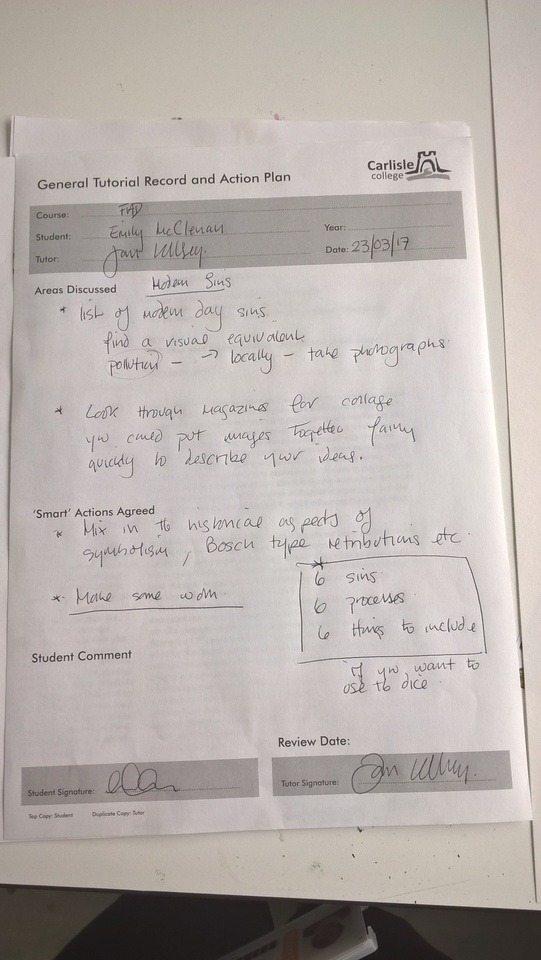 Carlisle
college
General Tutorial Record and Action Plan
Course: FAD
Student: Emily McClenan Year:
Tutor: Date: 23/03/17
Areas Discussed Modern Sins
* list of modern day sins
find a visual equivalent
pollution - → locally - take photographs.
* Look through magazines for collage
you could put images together fairly
quickly to describe your ideas.
'Smart' Actions Agreed
* Mix in the historical aspects of
symbolism, Bosch type retributions etc.
* Make some work.
*
6 sins
6 processes
6 things to include
if you want to
use the dice.
Student Comment
Review Date:
Student Signature:
Tutor Signature:
Top Copy: Student Duplicate Copy: Tutor